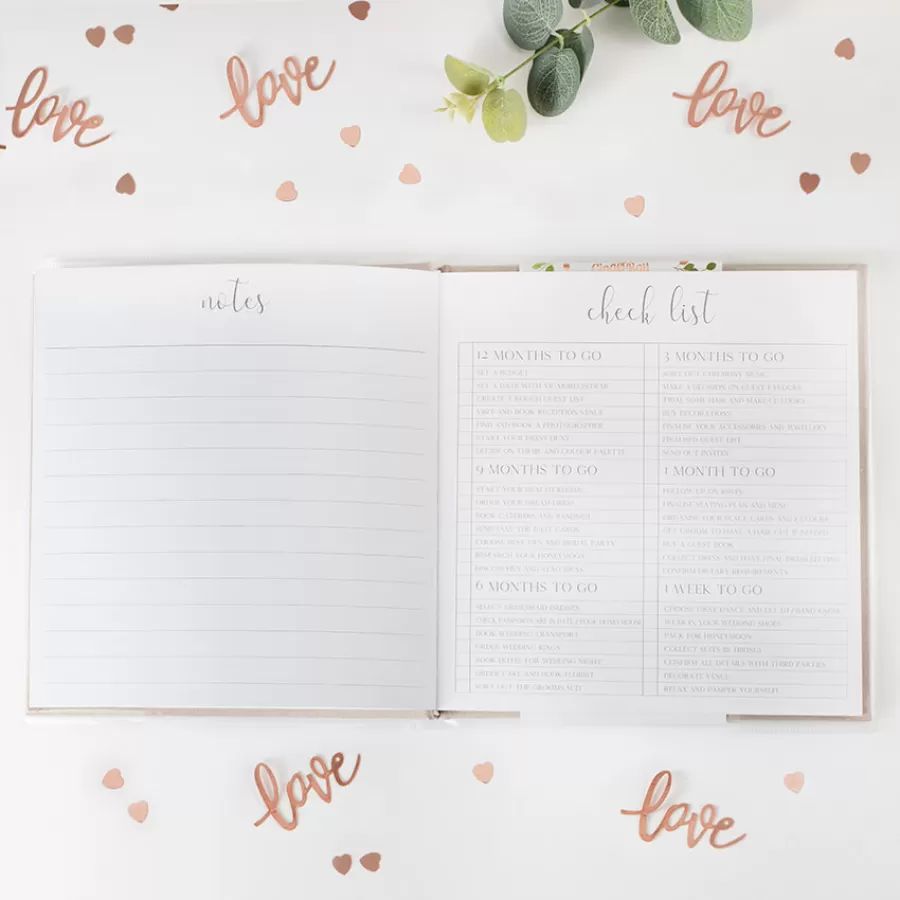 love
love
love
notes
GingerRay
check list
12 MONTHS TO GO
SET A BUDGET
SET A DATE WITH
CREATE A ROUGH GUEST LIST
VISIT AND BOOK RECEPTION VENUE
FIND AND BOOK A PHOTOGRAPHER
START YOUR DRESS HUNT
DECIDE ON THEME AND COLOUR PALETTE
9 MONTHS TO GO
ORDER YOUR DREAM DRESS
BOOK CATERING AND BAND/DJ
SEND SAVE THE DATE CARDS
CHOOSE BEST MEN AND BRIDAL PARTY
RESEARCH YOUR HONEYMOON
6 MONTHS TO GO
SELECT BRIDESMAID DRESSES
CHECK PASSPORTS ARE IN DATE / BOOK HONEYMOON
BOOK WEDDING TRANSPORT
ORDER WEDDING RINGS
BOOK HOTEL FOR WEDDING NIGHT
ORDER CAKE AND BOOK FLORIST
SORT OUT THE GROOMS SUIT
3 MONTHS TO GO
SORT OUT CEREMONY MUSIC
MAKE A DECISION ON GUEST FAVOURS
TRIAL SOME HAIR AND MAKE-UP LOOKS
BUY DECORATIONS
FINALISE YOUR ACCESSORIES AND JEWELLERY
FINALISED GUEST LIST
SEND OUT INVITES
1 MONTH TO GO
FOLLOW UP ON RSVPS
FINALISE SEATING PLAN AND MENU
ORGANISE YOUR PLACE CARDS AND FAVOURS
BUY A GUEST BOOK
COLLECT DRESS AND HAVE FINAL DRESS FITTING
CONFIRM DIETARY REQUIREMENTS
1 WEEK TO GO
CHOOSE FIRST DANCE AND LET DJ / BAND KNOW
WEAR IN YOUR WEDDING SHOES
PACK FOR HONEYMOON
COLLECT SUITS
CONFIRM ALL DETAILS WITH THIRD PARTIES
DECORATE VENUE
RELAX AND PAMPER YOURSELF
love
love